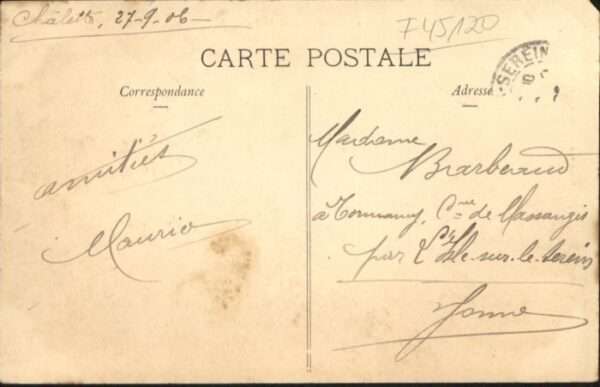 Châlette, 27-9-06
F45120
CARTE POSTALE
Correspondance
Adresse
SEREIN
amitiés
Maurice
Madame
Barbeaud
à Tormancy, Cne de Massangis
par L'Isle-sur-le-Serein
Yonne